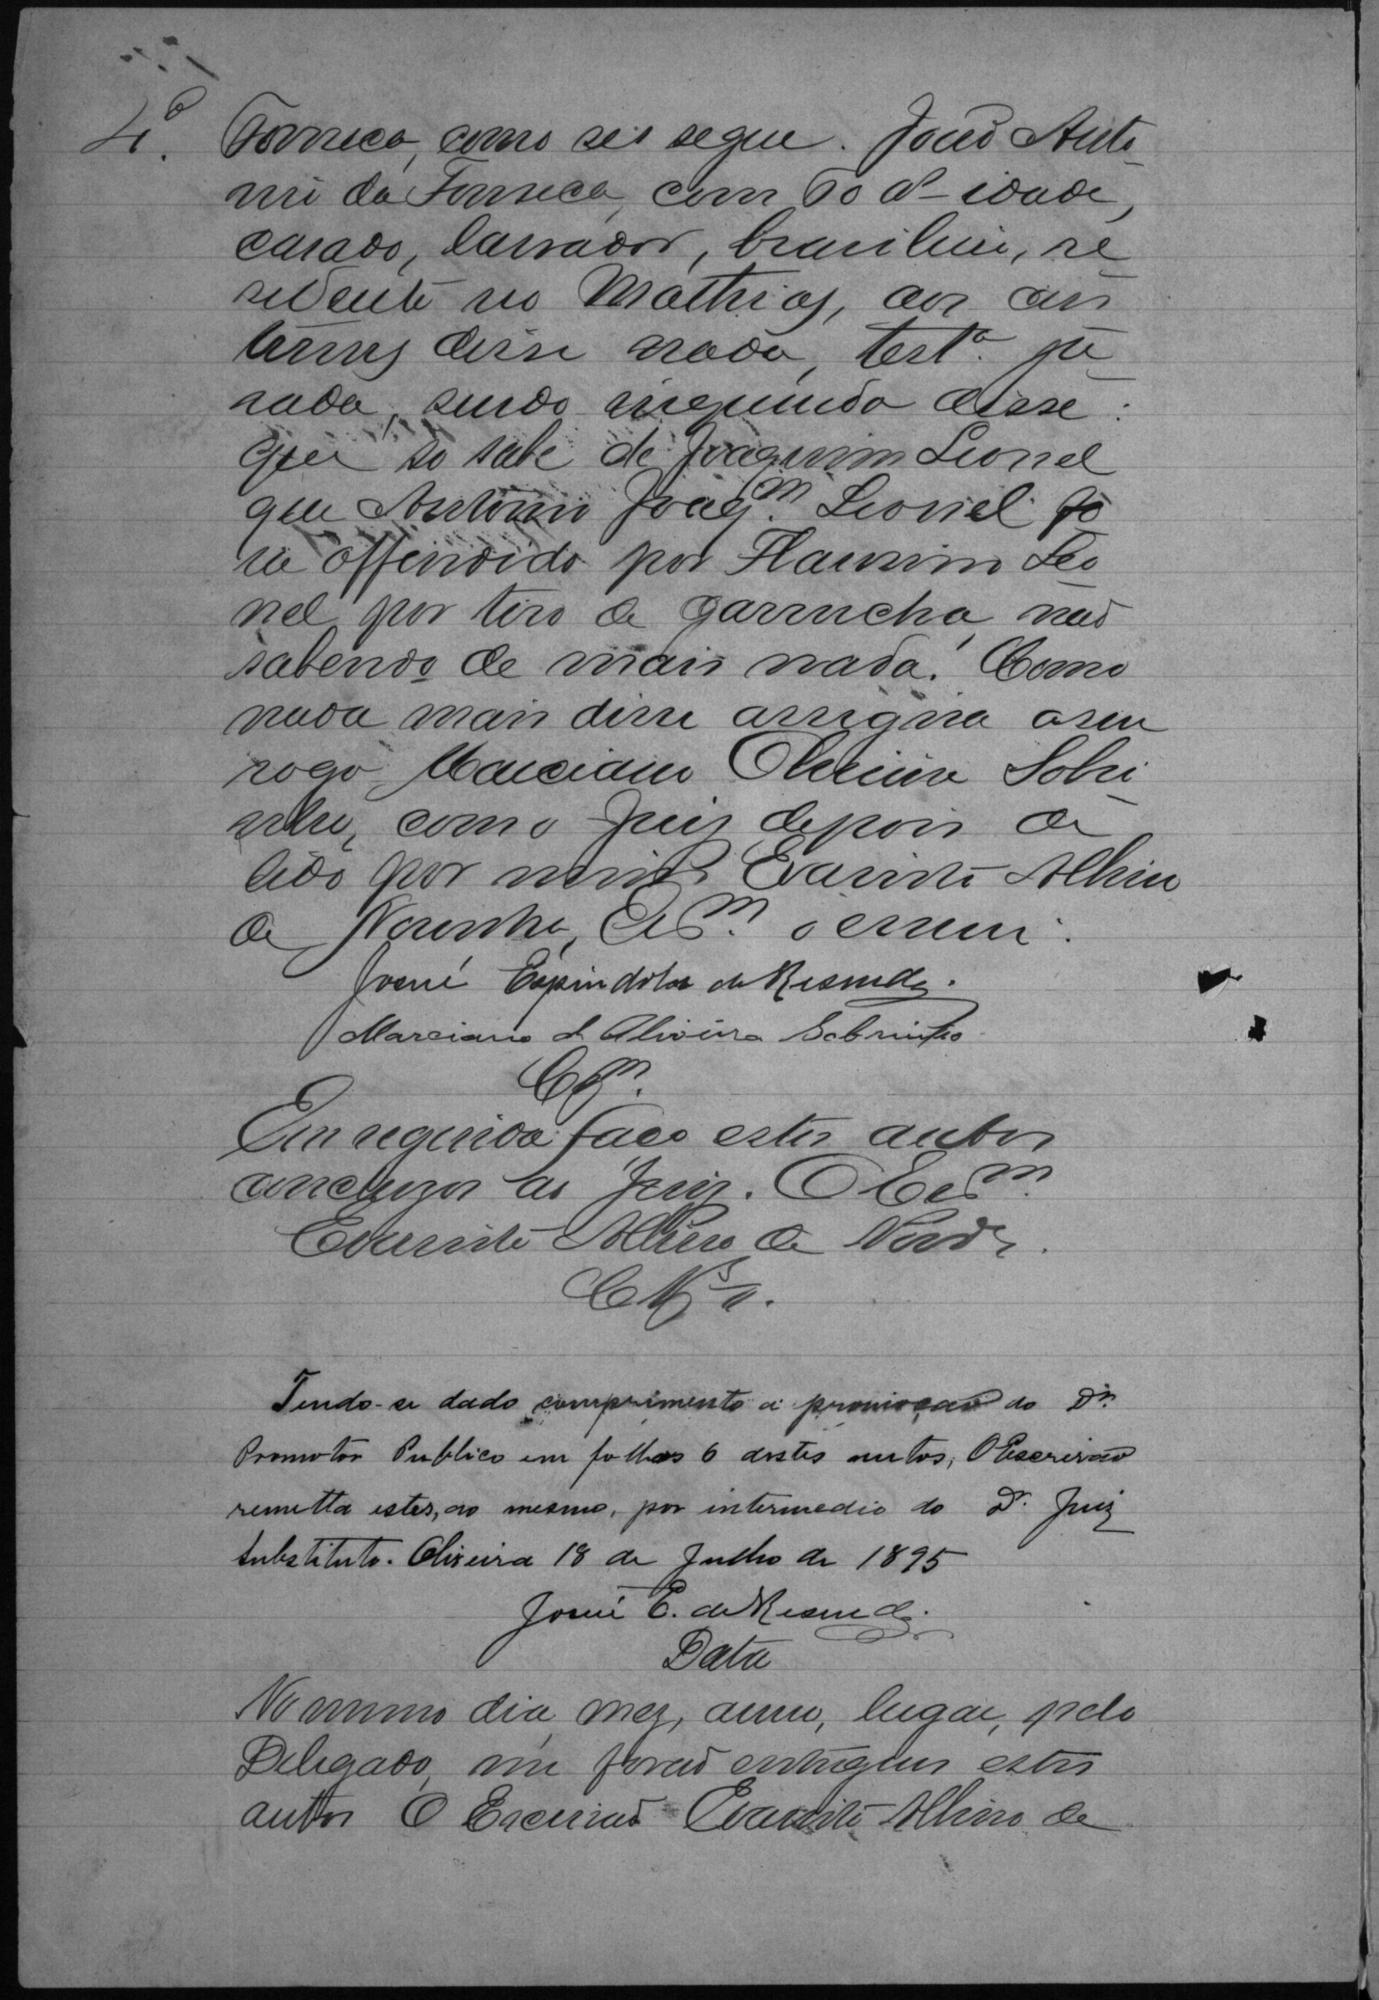 4º. Fonseca, como se segue. João Anto
nio da Fonseca, com 50 de idade,
casado, lavrador, brasileiro, re
sidente no Mathias, aos cus
tumes disse nada, testª. ju
rada, sendo inquirida disse:
que só sabe de Joaquim Leonel
que Antonio Joaqm. Leonel fo
ra offendido por Flauzino Leo
nel por tiro de garrucha, não
sabendo de mais nada. Como
nada mais disse assigna a seu
rogo Marciano Oliveira Sobri
nho, como Juiz depois de
lido por mim Evaristo Albino
de Noronha, Esm. o escrevi.
Josué Espindola de Resende.
Marciano d Oliveira Sobrinho
Clm.
Em seguida faço estes autos
conclusos ao Juiz. O Esm.
Evaristo Albino de Norª.
Clsos.
Tendo-se dado comprimento a promoção do Dr.
Promotor Publico em folhas 6 destes autos, O Escrivão
remetta estes, ao mesmo, por intermedio do Dr. Juiz
Substituto. Oliveira 18 de Julho de 1895
Josué E. de Resende.
Data
No mesmo dia, mez, anno, lugar, pelo
Delegado, me forão entregues estes
autos O Escrivão Evaristo Albino de